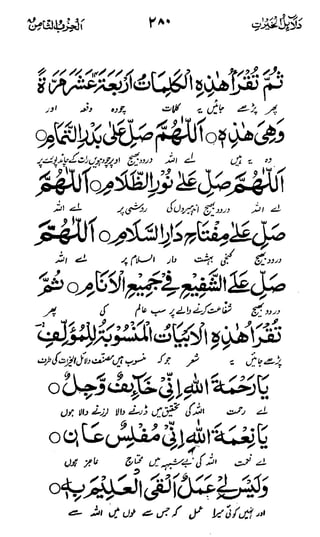 دلائل الخیرات ۲۸۰ الحزب الثامن
ثُمَّ تُقْرَأُ هٰذِهِ الْكَلِمَاتُ اَرْبَعَةَ عَشَرَ مَرَّةً
پھر پڑھے جائیں یہ کلمات چودہ دفعہ اور
وَهِيَ هٰذِهٖ اَللّٰهُمَّ صَلِّ عَلٰى بَدْرِ التَّمَامِ
وہ یہ ہیں اے اللہ درود بھیج اوپر چودہویں رات کے چاند
اَللّٰهُمَّ صَلِّ عَلٰى نُوْرِ الظَّلَامِ اَللّٰهُمَّ
اے اللہ درود بھیج اندھیروں کی روشنی پر اے اللہ
صَلِّ عَلٰى مِفْتَاحِ دَارِ السَّلَامِ اَللّٰهُمَّ
درود بھیج کنجی بہشت دار السلام پر اے اللہ
صَلِّ عَلَى الشَّفِيْعِ فِيْ جَمِيْعِ الْاَنَامِ ثُمَّ
درود بھیج شفاعت کرنے والے پر سب عالم کی پھر
تُقْرَأُ هٰذِهِ الْاَبْيَاتُ الْمَنْسُوْبَةُ لِلْمُؤَلِّفِ
پڑھے جائیں یہ شعر جو کہ منسوب ہیں مصنف دلائل الخیرات کی طرف
يَا رَحْمَةَ اللّٰهِ اِنِّيْ خَائِفٌ وَّجِلٌ
اے رحمت اللہ کی تحقیق میں ڈرنے والا لرزنے والا ہوں
يَا نِعْمَةَ اللّٰهِ اِنِّيْ مُفْلِسٌ عَانٍ
اے نعمت اللہ کی بے شبہ میں محتاج عاجز ہوں
وَلَيْسَ لِيْ عَمَلٌ اَلْقَى الْعَلِيْمَ بِهٖ
اور نہیں کوئی میرا عمل کہ جس سے ملوں میں اللہ سے